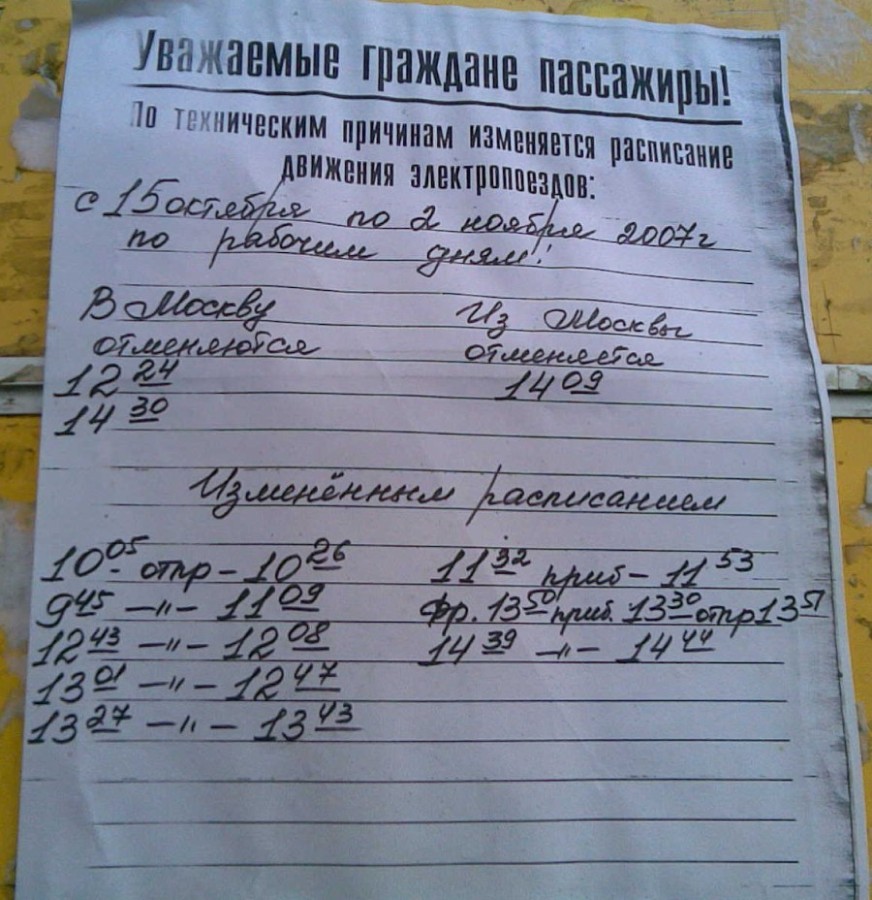 Уважаемые граждане пассажиры!
По техническим причинам изменяется расписание
движения электропоездов:
с 15 октября по 2 ноября 2007г
по рабочим дням!
В Москву Из Москвы
отменяются отменяется
12 24 14 09
14 30
Изменённым расписанием
10 05 отпр - 10 26 11 32 приб - 11 53
9 45 -〃- 11 09 Фр. 13 50 приб. 13 30 отпр 13 51
12 43 -〃- 12 08 14 39 -〃- 14 44
13 01 -〃- 12 47
13 27 -〃- 13 43